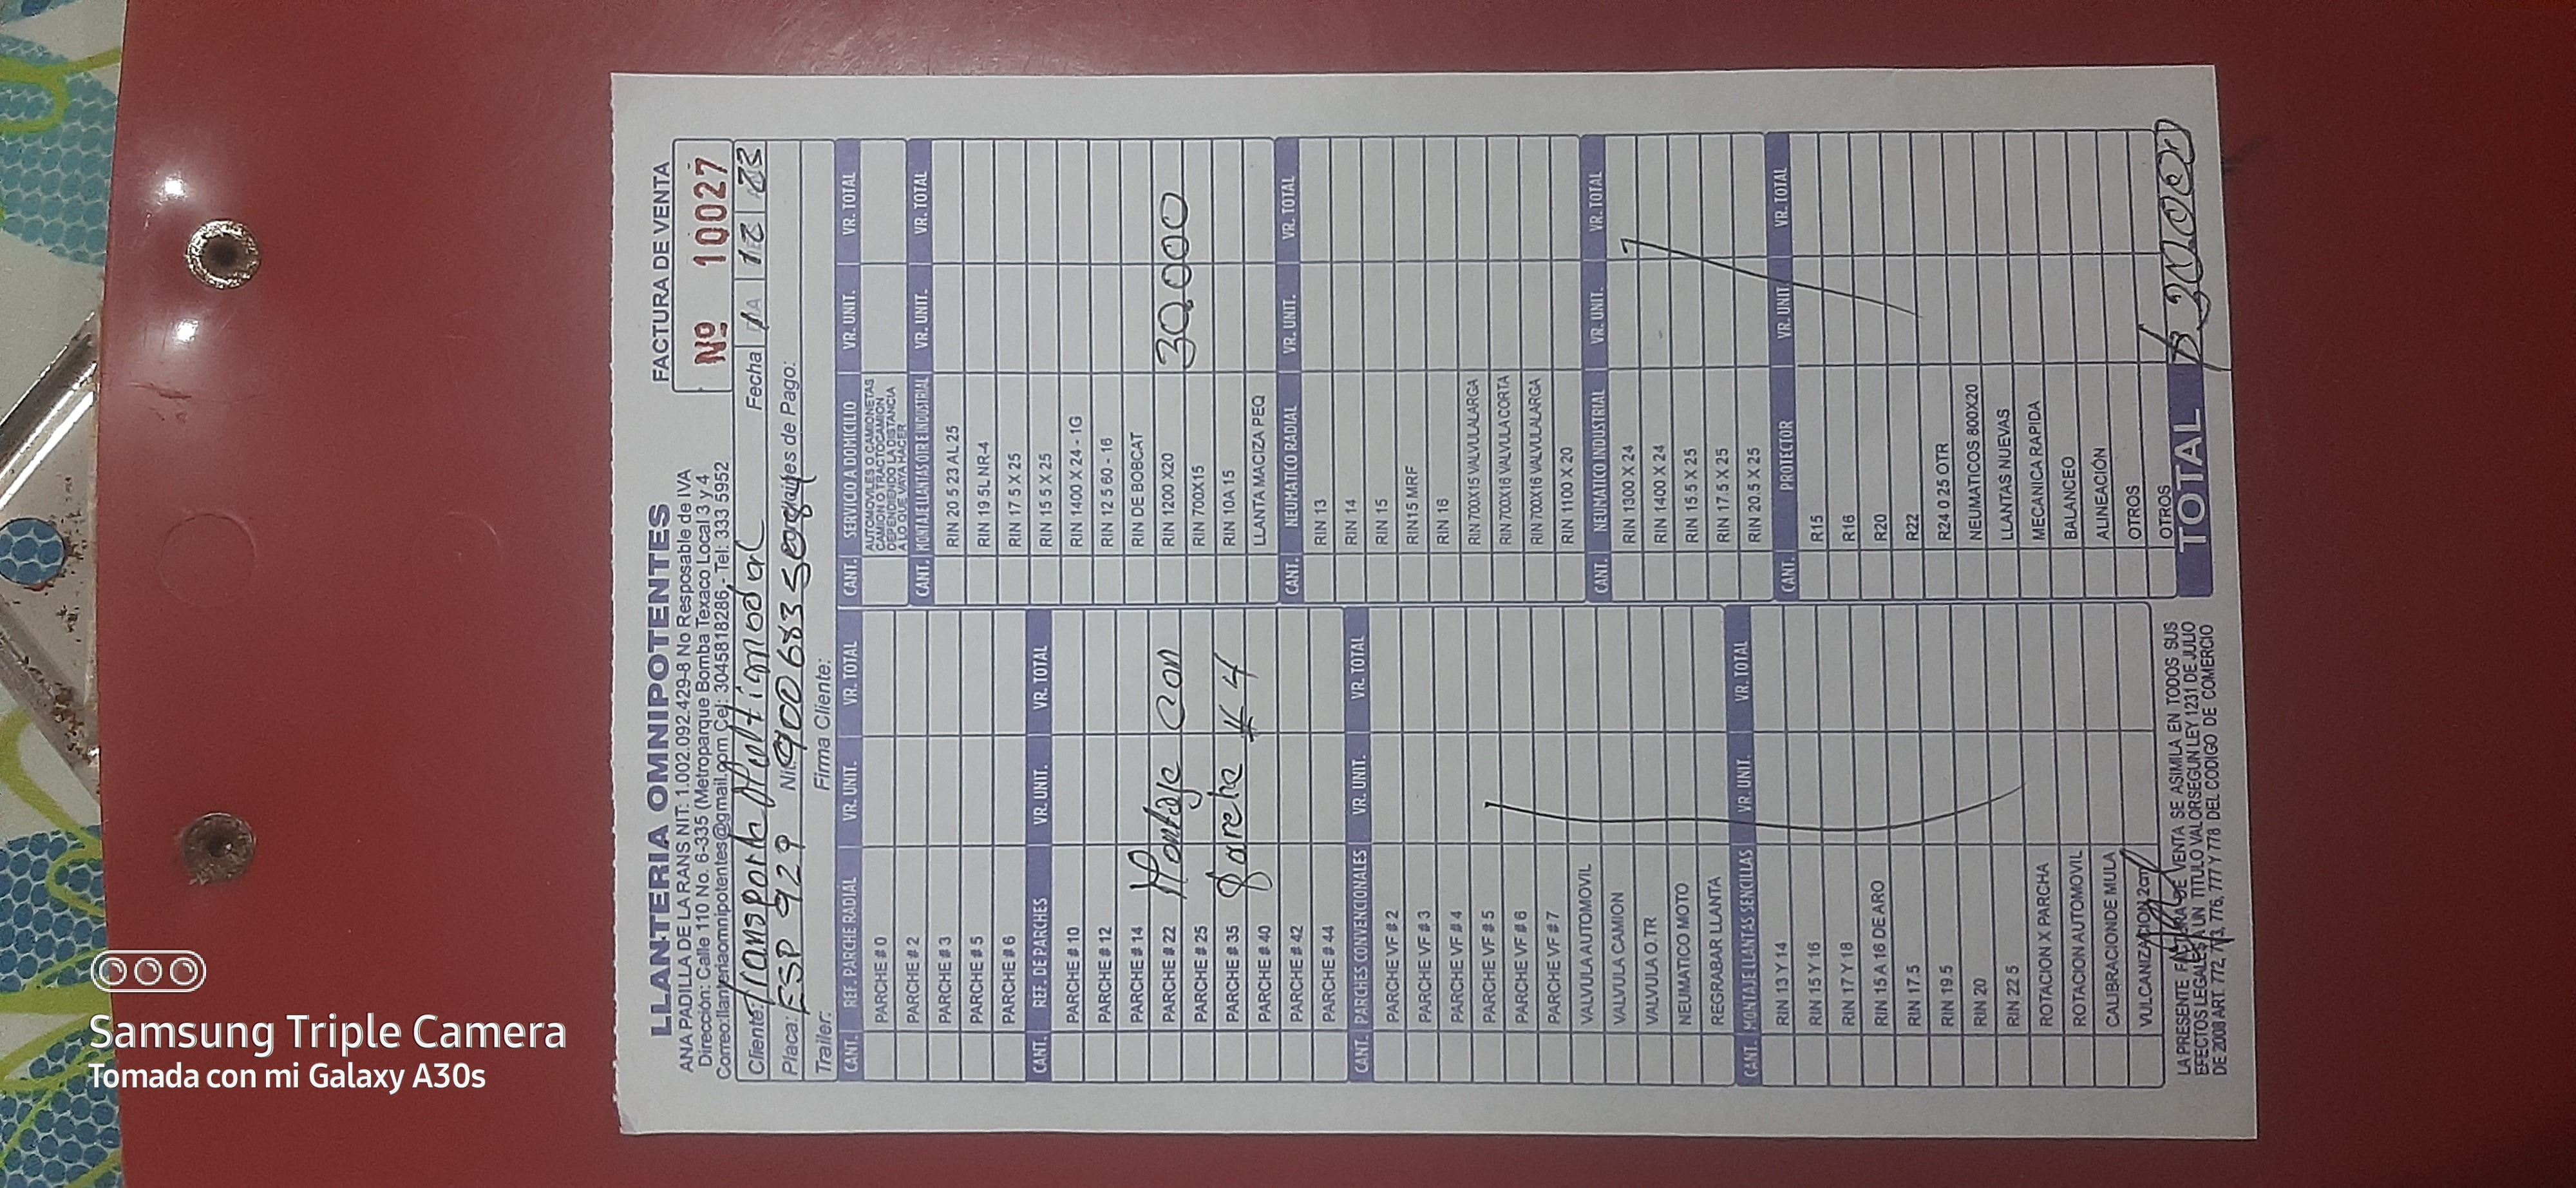 LLANTERIA OMNIPOTENTES
FACTURA DE VENTA
ANA PADILLA DE LA RANS NIT: 1.002.092.429-8 No Resposable de IVA
Dirección: Calle 110 No. 6-335 (Metroparque Bomba Texaco Local 3 y 4
Correo:llanteriaomnipotentes@gmail.com Cel: 3045818286,- Tel: 333 5952
Nº 10027
Cliente: Transporte Multimodal Fecha 12 23
Placa: ESP 929 Nit 900683508 de Pago:
Trailer: Firma Cliente:
CANT. REF. PARCHE RADIAL VR. UNIT. VR. TOTAL
PARCHE # 0
PARCHE # 2
PARCHE # 3
PARCHE # 5
PARCHE # 6
CANT. REF. DE PARCHES VR. UNIT. VR. TOTAL
PARCHE # 10
PARCHE # 12
PARCHE # 14
PARCHE # 22 Montaje con
PARCHE # 25
PARCHE # 35 Parche # 4
PARCHE # 40
PARCHE # 42
PARCHE # 44
CANT. PARCHES CONVENCIONALES VR. UNIT. VR. TOTAL
PARCHE VF # 2
PARCHE VF # 3
PARCHE VF # 4
PARCHE VF # 5
PARCHE VF # 6
PARCHE VF # 7
VALVULA AUTOMOVIL
VALVULA CAMION
VALVULA O.TR
NEUMATICO MOTO
REGRABAR LLANTA
CANT. MONTAJE LLANTAS SENCILLAS VR. UNIT. VR. TOTAL
RIN 13 Y 14
RIN 15 Y 16
RIN 17 Y 18
RIN 15 A 16 DE ARO
RIN 17.5
RIN 19.5
RIN 20
RIN 22 5
ROTACION X PARCHA
ROTACION AUTOMOVIL
CALIBRACIONDE MULA
VULCANIZACION 2cm
CANT. SERVICIO A DOMICILIO VR. UNIT. VR. TOTAL
AUTOMOVILES O CAMIONETAS
CAMION O TRACTOCAMION
DEPENDIENDO LA DISTANCIA
A LO QUE VAYA HACER
CANT. MONTAJE LLANTAS OTR E INDUSTRIAL VR. UNIT. VR. TOTAL
RIN 20 5 23 AL 25
RIN 19 5L NR-4
RIN 17 5 X 25
RIN 15 5 X 25
RIN 1400 X 24 - 1G
RIN 12 5 60 - 16
RIN DE BOBCAT
RIN 1200 X20 32000
RIN 700X15
RIN 10A 15
LLANTA MACIZA PEQ
CANT. NEUMATICO RADIAL VR. UNIT. VR. TOTAL
RIN 13
RIN 14
RIN 15
RIN15 MRF
RIN 16
RIN 700X15 VALVULALARGA
RIN 700X16 VALVULA CORTA
RIN 700X16 VALVULALARGA
RIN 1100 X 20
CANT. NEUMATICO INDUSTRIAL VR. UNIT. VR. TOTAL
RIN 1300 X 24
RIN 1400 X 24
RIN 15 5 X 25
RIN 17.5 X 25
RIN 20.5 X 25
CANT. PROTECTOR VR. UNIT. VR. TOTAL
R15
R16
R20
R22
R24 0 25 OTR
NEUMATICOS 800X20
LLANTAS NUEVAS
MECANICA RAPIDA
BALANCEO
ALINEACIÓN
OTROS
OTROS
TOTAL $ 32000
LA PRESENTE FACTURA DE VENTA SE ASIMILA EN TODOS SUS
EFECTOS LEGALES A UN TITULO VALORSEGUN LEY 1231 DE JULIO
DE 2008 ART. 772, 773, 776, 777 Y 778 DEL CODIGO DE COMERCIO
Samsung Triple Camera
Tomada con mi Galaxy A30s